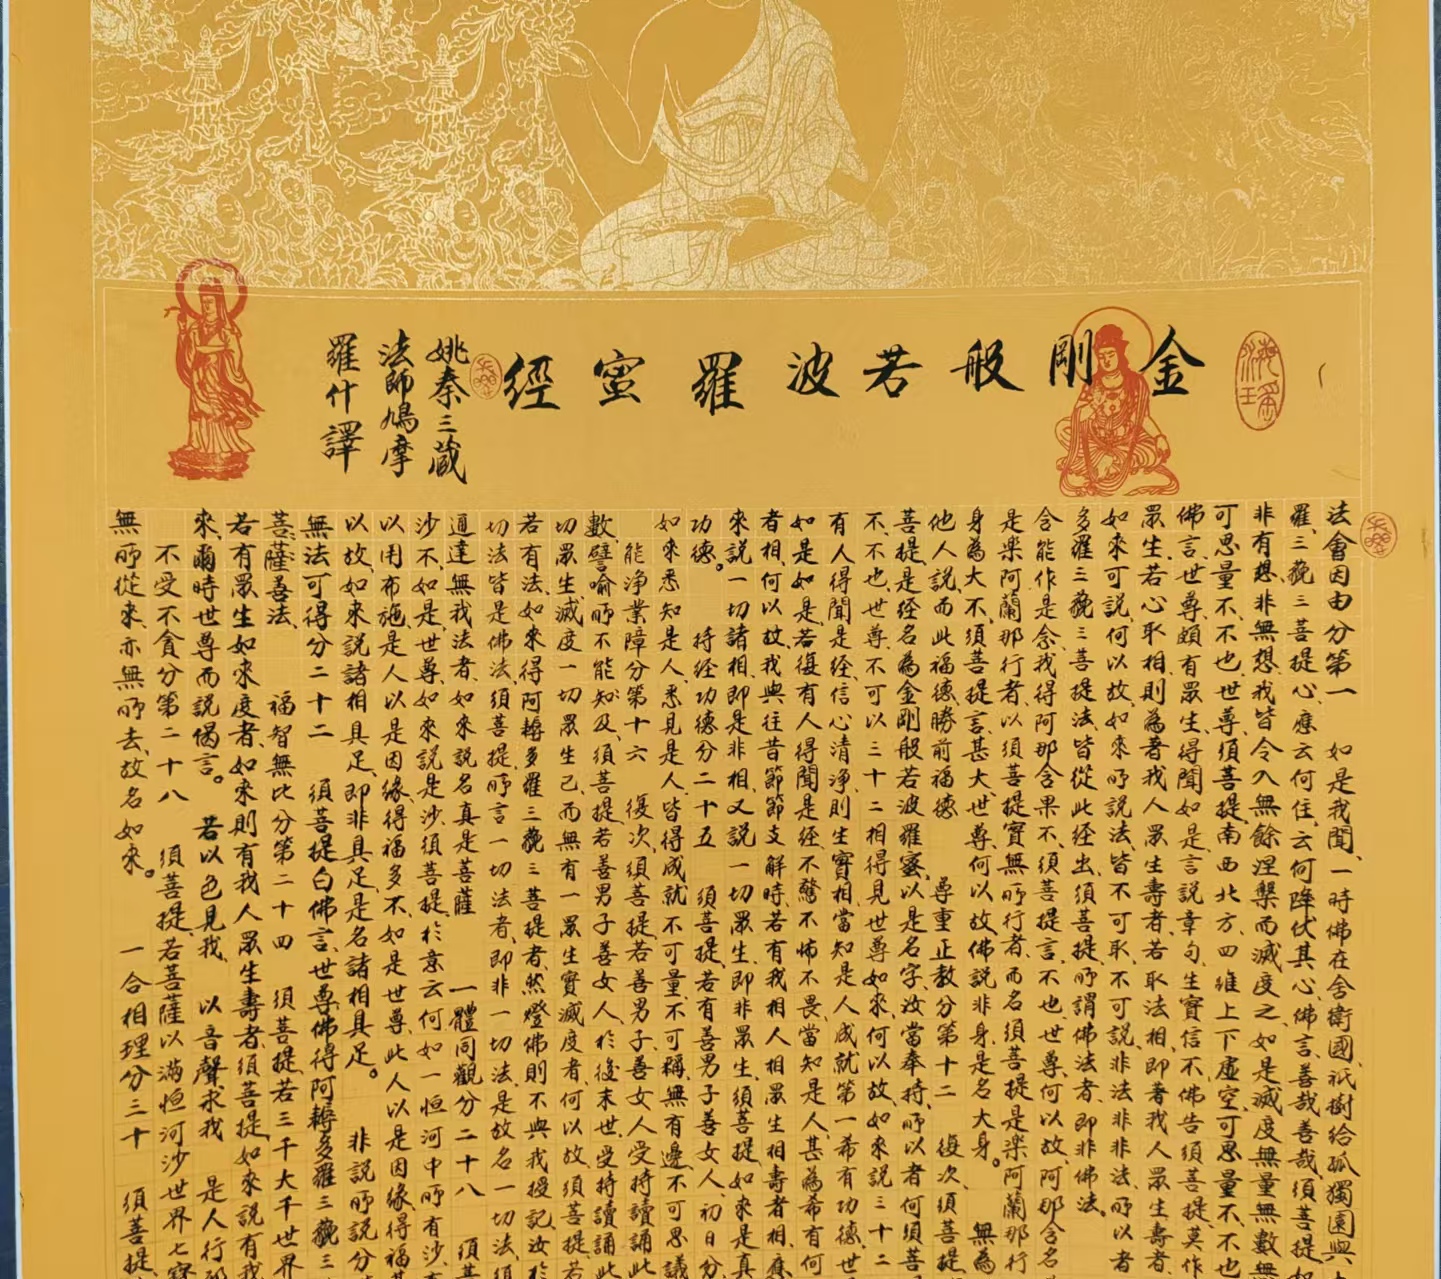 金剛般若波羅蜜經
姚秦三藏
法師鳩摩
羅什譯
法會因由分第一 如是我聞、一時佛在舍衛國、祇樹給孤獨園與
羅、三藐三菩提心、應云何住、云何降伏其心、佛言、善哉善哉、須菩提、如
非有想、非無想、我皆令入無餘涅槃而滅度之、如是滅度無量無數無
可思量不、不也、世尊、須菩提南西北方、四維上下虛空、可思量不、不也
佛言、世尊、頗有眾生、得聞如是言說章句、生實信不、佛告須菩提、莫作
眾生、若心取相、則為著我人眾生壽者、若取法相、即著我人眾生壽者、
如來可說、何以故、如來所說法、皆不可取、不可說、非法非非法、所以者
多羅三藐三菩提法、皆從此經出、須菩提、所謂佛法者、即非佛法。
含能作是念、我得阿那含果不、須菩提言、不也、世尊、何以故、阿那含名
是樂阿蘭那行者、以須菩提實無所行者、而名須菩提、是樂阿蘭那行
身為大不、須菩提言、甚大、世尊、何以故、佛說非身、是名大身。 無為
他人說、而此福德、勝前福德 尊重正教分第十二 復次、須菩提
菩提、是經名為金剛般若波羅蜜、以是名字、汝當奉持、所以者何、須菩
不、不也、世尊、不可以三十二相得見世尊如來、何以故、如來說三十二
有人得聞是經、信心清淨、則生實相、當知是人、成就第一希有功德、世
如是如是、若復有人得聞是經、不驚不怖不畏、當知是人、甚為希有、何
者相、何以故、我與往昔節節支解時、若有我相人相眾生相壽者相、應
來說一切諸相、即是非相、又說一切眾生、即非眾生、須菩提、如來是真
功德。 持經功德分二十五 須菩提、若有善男子善女人、初日分
如來悉知是人、悉見是人、皆得成就不可量、不可稱、無有邊、不可思議
能淨業障分第十六 復次、須菩提、若善男子善女人、受持讀誦此
數、譬喻所不能知及、須菩提、若善男子善女人、於後末世、受持讀誦此
切眾生、滅度一切眾生已、而無有一眾生實滅度者、何以故、須菩提、若
若有法、如來得阿耨多羅三藐三菩提者、然燈佛則不與我授記、汝於
切法、皆是佛法、須菩提、所言一切法者、即非一切法、是故名一切法、須
通達無我法者、如來說名真是菩薩 一體同觀分二十八 須菩
沙不、如是、世尊、如來說是沙、須菩提、於意云何、如一恒河中所有沙、
以用布施、是人以是因緣、得福多不、如是、世尊、此人以是因緣、得福甚
以故、如來說諸相具足、即非具足、是名諸相具足。 非說所說分
無法可得分二十二 須菩提白佛言、世尊、佛得阿耨多羅三藐三
菩薩、善法、 福智無比分第二十四 須菩提、若三千大千世界
若有眾生如來度者、如來則有我人眾生壽者、須菩提、如來說有我
來、爾時世尊而說偈言。 若以色見我 以音聲求我 是人行邪
不受不貪分第二十八 須菩提、若菩薩以滿恒河沙世界七寶
無所從來、亦無所去、故名如來。 一合相理分三十 須菩提、